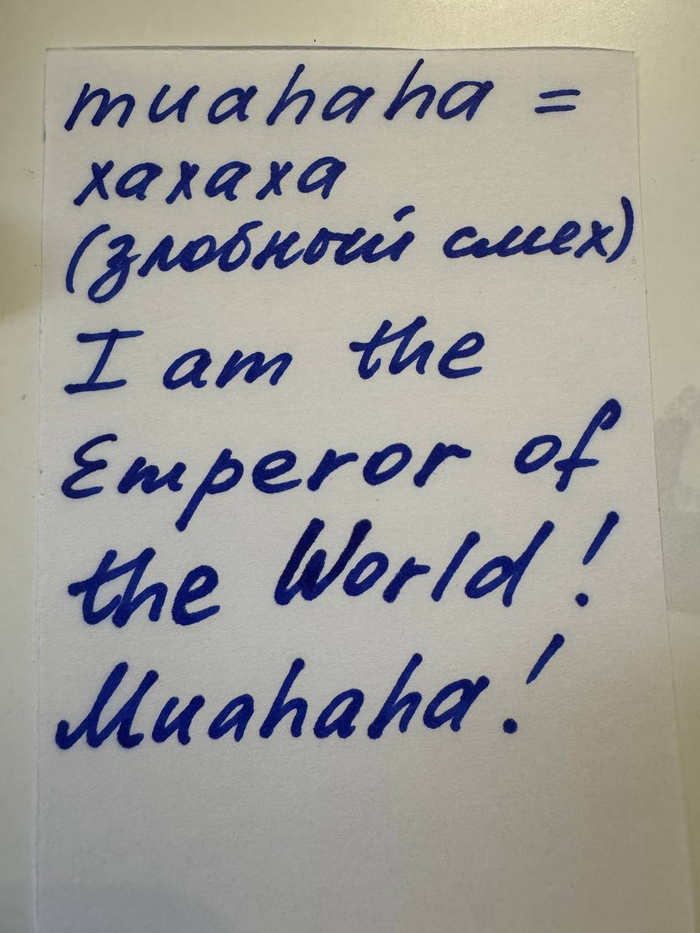 muahaha =
хахаха
(злобный смех)
I am the
Emperor of
the World!
Muahaha!